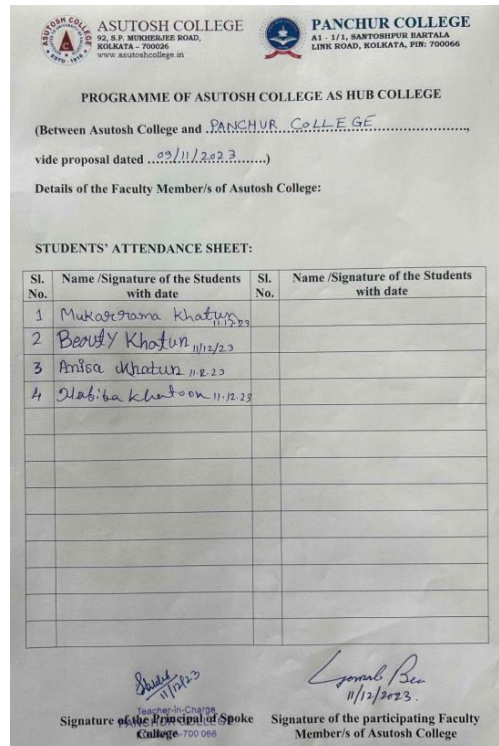 ASUTOSH COLLEGE
92, S.P. MUKHERJEE ROAD,
KOLKATA - 700026
www.asutoshcollege.in
ASUTOSH COLLEGE
ESTD - 1916
PANCHUR COLLEGE
A1 - 1/1, SANTOSHPUR BARTALA
LINK ROAD, KOLKATA, PIN: 700066
PROGRAMME OF ASUTOSH COLLEGE AS HUB COLLEGE
(Between Asutosh College and PANCHUR COLLEGE,
vide proposal dated 09/11/2023)
Details of the Faculty Member/s of Asutosh College:
STUDENTS' ATTENDANCE SHEET:
Sl. No. Name /Signature of the Students with date Sl. No. Name /Signature of the Students with date
1 Mukarrama Khatun 11.12.23
2 Beauty Khatun 11/12/23
3 Anisa Khatun 11.2.23
4 Habiba Khatoon 11.12.23
11/12/23
11/12/2023.
Teacher-in-Charge
PANCHUR COLLEGE
Kolkata-700 066
Signature of the Principal of Spoke College
Signature of the participating Faculty Member/s of Asutosh College